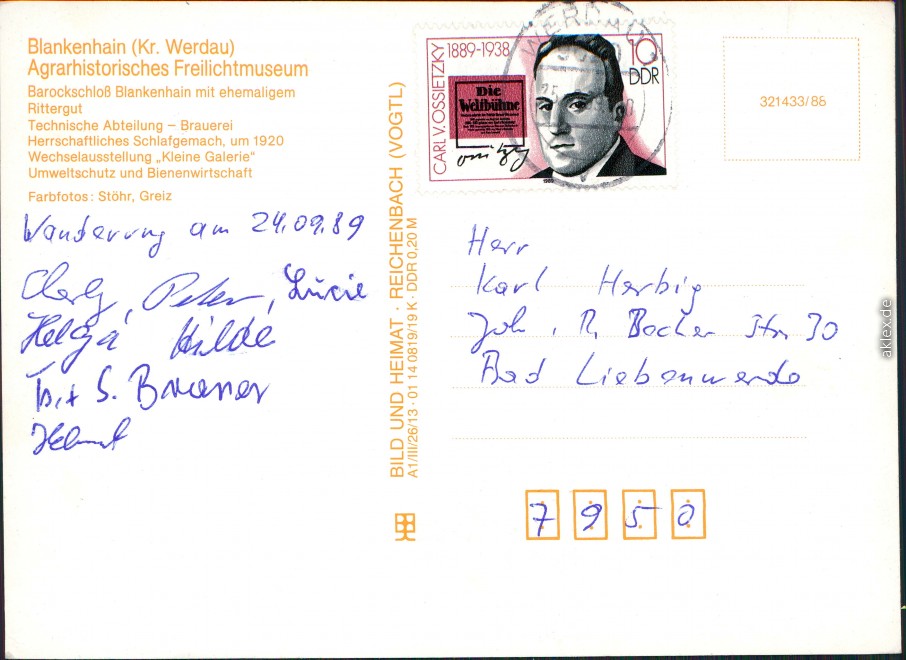 Blankenhain (Kr. Werdau)
Agrarhistorisches Freilichtmuseum
Barockschloß Blankenhain mit ehemaligem
Rittergut
Technische Abteilung – Brauerei
Herrschaftliches Schlafgemach, um 1920
Wechselausstellung „Kleine Galerie“
Umweltschutz und Bienenwirtschaft
Farbfotos: Stöhr, Greiz
Wanderung am 24.09.89
Charly, Peter, Lucie
Helga Hilde
S.
Helmut
BILD UND HEIMAT · REICHENBACH (VOGTL)
A1/III/26/13 · 01 14 0819/19 K · DDR 0,20 M
CARL V. OSSIETZKY
1889-1938
10
DDR
Die
Weltbühne
1989
WERDAU
321433/86
Herr
Karl Herbig
Joh. R. Becher Str 30
Bad Liebenwerda
7950
aklex.de